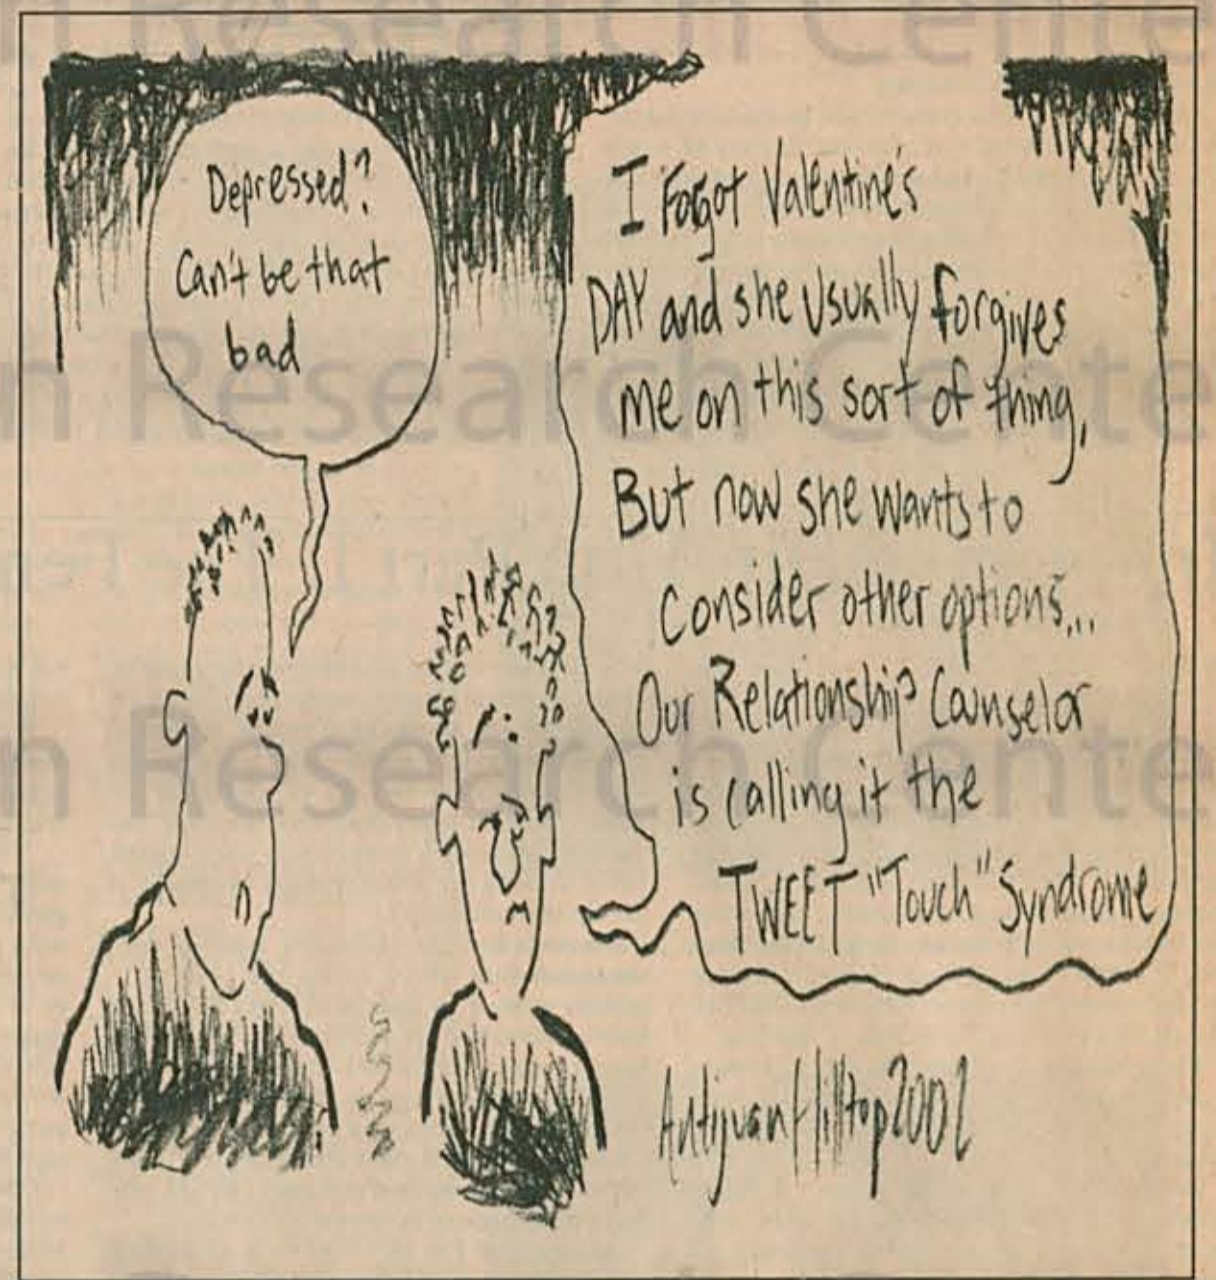 Depressed?
Can't be that
bad
I Forgot Valentine's
DAY and she usually forgives
me on this sort of thing,
But now she wants to
Consider other options...
Our Relationship Counselor
is calling it the
TWEET "Touch" Syndrome
Antijuan Hilltop 2002
n Research Cente
n Research Cente
n Research Cente